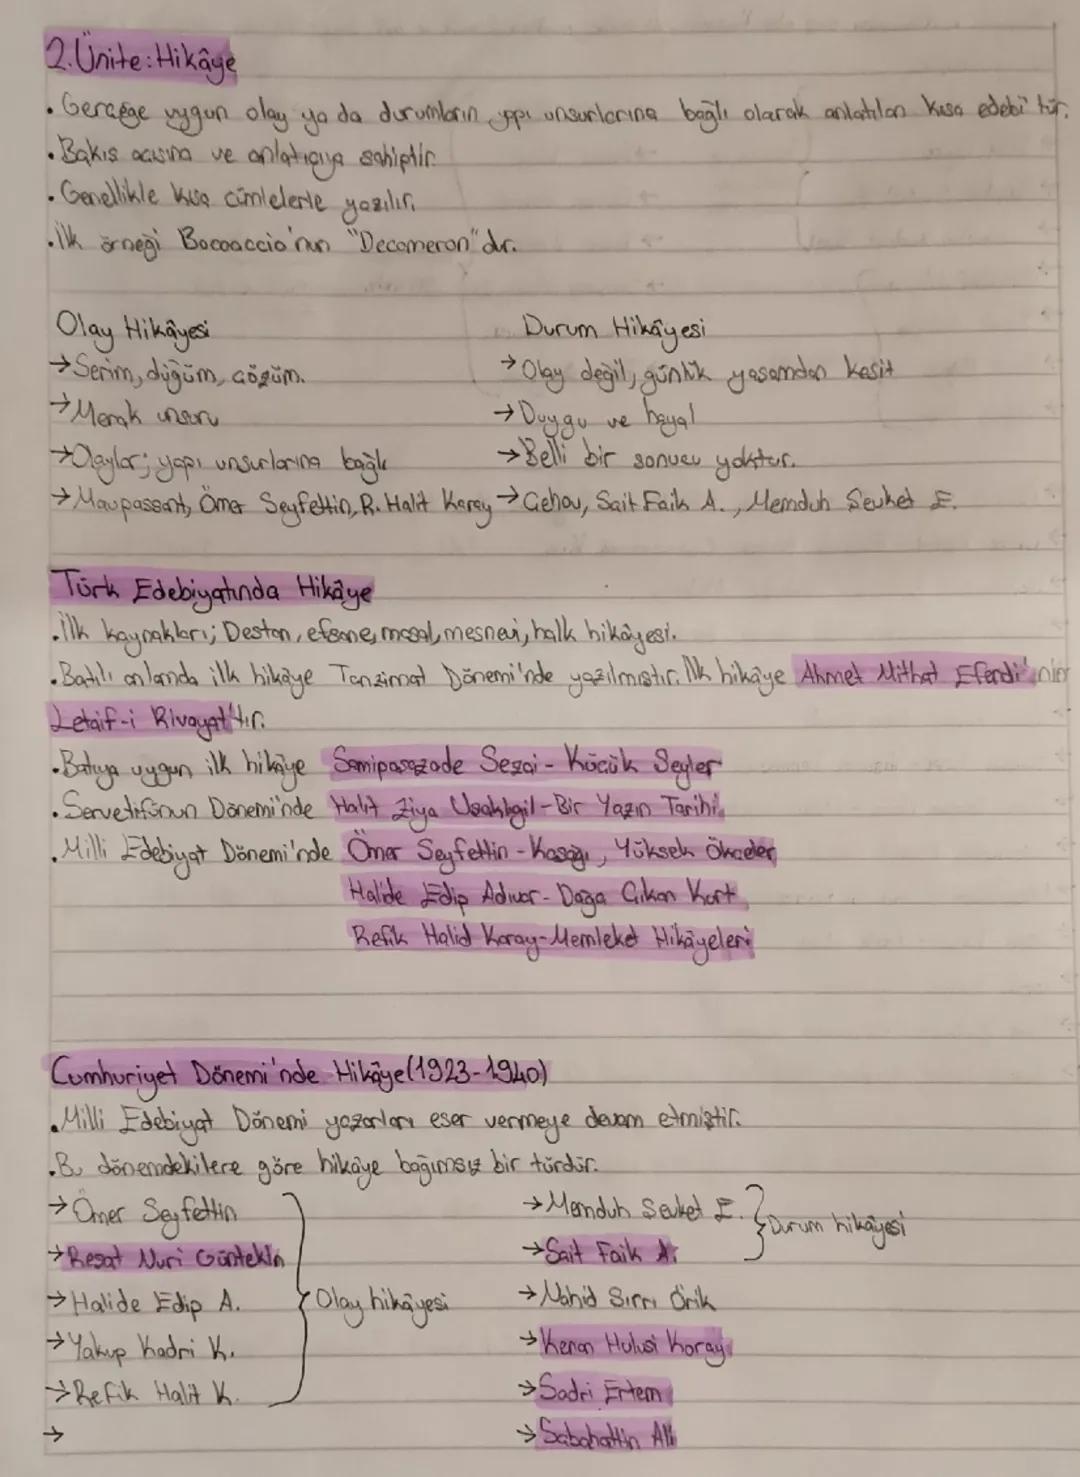 2.Ünite: Hikâye
• Gerçeğe uygun olay ya da durumların, yapı unsurlarına bağlı olarak anlatılan kısa edebi tür.
• Bakış açısına ve anlatıcıya sahiptir.
• Genellikle kısa cümlelerle yazılır.
• İlk örneği Bocoaccio'nun "Decomeron"dur.
Olay Hikâyesi
→ Serim, düğüm, çözüm.
→ Merak unsuru
→ Olaylar; yapı unsurlarına bağlı
→ Maupassant, Ömer Seyfettin, R. Halit Karay
Durum Hikâyesi
→ Olay değil, günlük yaşamdan kesit
→ Duygu ve hayal
→ Belli bir sonucu yoktur.
→ Çehov, Sait Faik A., Memduh Şevket E.
Türk Edebiyatında Hikâye
• İlk kaynakları; Destan, efsane, masal, mesnevi, halk hikâyesi.
• Batılı anlamda ilk hikâye Tanzimat Dönemi'nde yazılmıştır. İlk hikâye Ahmet Mithat Efendi'nin
Letaif-i Rivayat'tır.
• Batıya uygun ilk hikâye Samipaşazade Sezai - Küçük Şeyler
• Servetifünun Dönemi'nde Halit Ziya Uşaklıgil - Bir Yazın Tarihi,
• Milli Edebiyat Dönemi'nde Ömer Seyfettin - Kaşağı, Yüksek Ökçeler
Halide Edip Adıvar - Dağa Çıkan Kurt
Refik Halid Karay - Memleket Hikâyeleri
Cumhuriyet Dönemi'nde Hikâye (1923-1940)
• Milli Edebiyat Dönemi yazarları eser vermeye devam etmiştir.
• Bu dönemdekilere göre hikâye bağımsız bir türdür.
→ Ömer Seyfettin
→ Reşat Nuri Güntekin
→ Halide Edip A.
→ Yakup Kadri K.
→ Refik Halit K.
→
Olay hikâyesi
→ Memduh Şevket E.
→ Sait Faik A.
Durum hikâyesi
→ Nahid Sırrı Örik
→ Kenan Hulusi Koray
→ Sadri Ertem
→ Sabahattin Ali